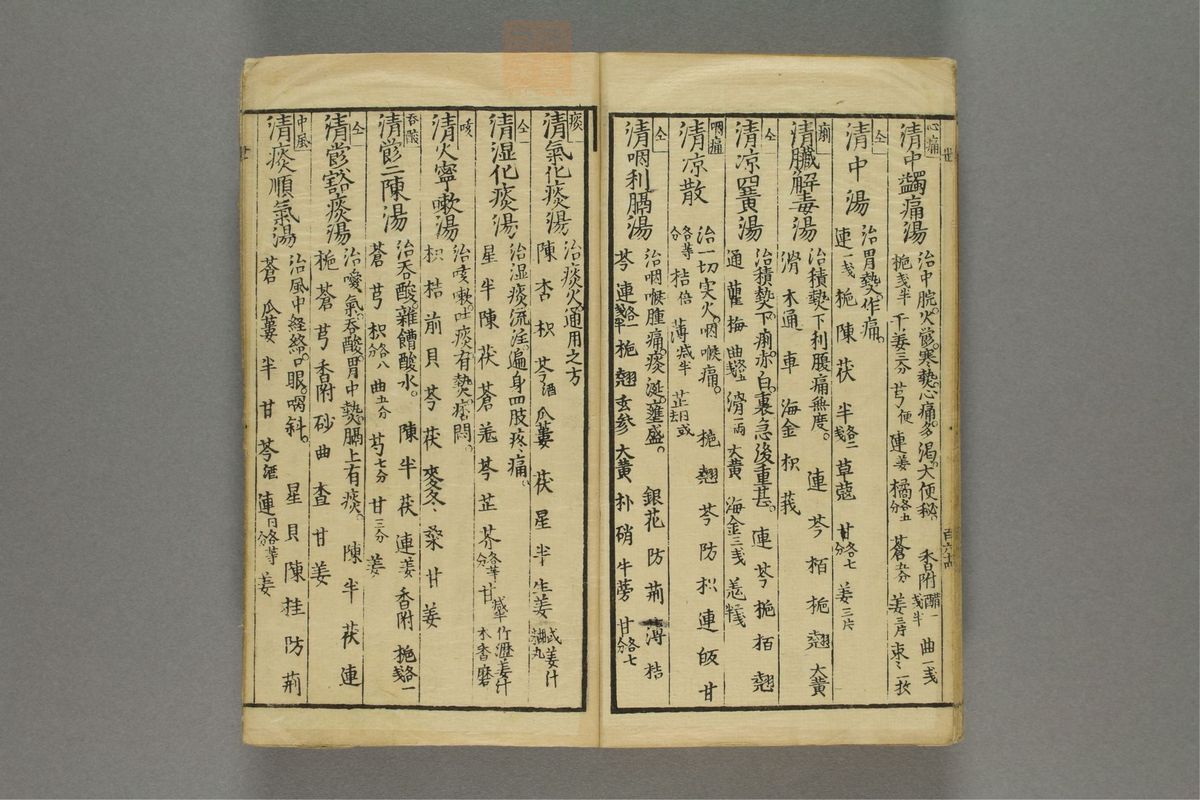 心痛
清中蠲痛湯
治中脘火欝寒熱心痛多渴大便秘
香附醋一戔半
曲一戔
梔戔半
干姜三分
芎便
連姜
橘各五分
蒼五分
姜三片
枣二枚
仝
清中湯
治胃熱作痛
連一戔
梔陳茯半各二戔
草蔻
甘各七分
姜三片
痢
清臟解毒湯
治積熱下利腹痛無度
連芩栢梔翹大黄
滑木通車海金枳莪
仝
清凉四黄湯
治積熱下痢赤白裏急後重甚
連芩梔栢翹
通
梅曲各五
滑一両
大黄
海金三戔
咽痛
清凉散
治一切实火咽喉痛
梔翹芩防枳連
甘各等分
桔倍
薄减半
仝
清咽利膈湯
治咽喉腫痛痰涎壅盛
銀花防荊薄桔
芩連各一戔半
梔翹玄参大黄朴硝牛蒡甘各七分
痰
清氣化痰湯
治痰火通用之方
陳杏枳芩酒瓜蔞茯星半生姜
或姜汁糊丸
仝
清湿化痰湯
治湿痰流注遍身四肢疼痛
星半陳茯蒼羌芩芷芥各等分
甘减半
竹瀝姜汁
木香磨
咳
清火寧嗽湯
治咳嗽吐痰有熱痞悶
枳桔前貝芩茯麥冬桑甘姜
吞酸
清欝二陳湯
治吞酸雜饋酸水
陳半茯連姜香附梔各一戔
蒼芎枳各八分
曲五分
芍七分
甘三分
姜
仝
清欝豁痰湯
治噯氣吞酸胃中熱膈上有痰
陳半茯連
梔蒼芎香附砂曲查甘姜
中風
清痰順氣湯
治風中経絡口眼喎斜
星貝陳桂防荊
蒼瓜蔞半甘芩酒連
各等分
姜